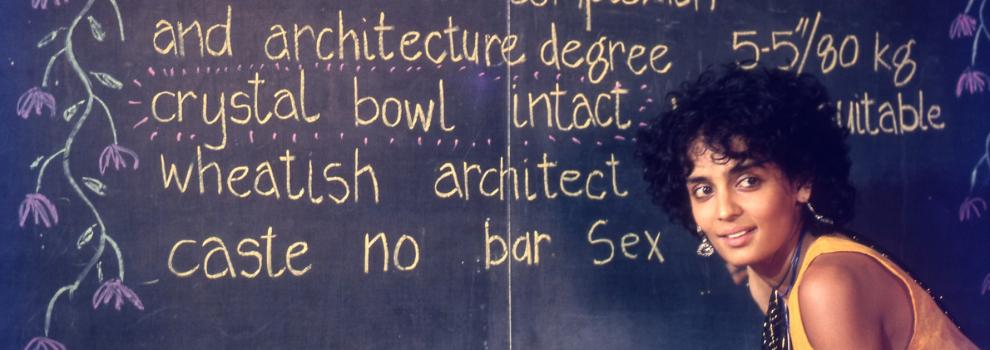 complexion
and architecture degree 5-5"/80 kg
crystal bowl intact
wheatish architect
caste no bar Sex